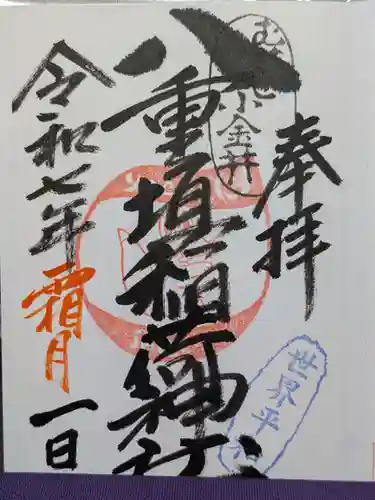 奉拝
むさし小金井
八重垣稲荷神社
世界平和
令和七年
霜月
一日